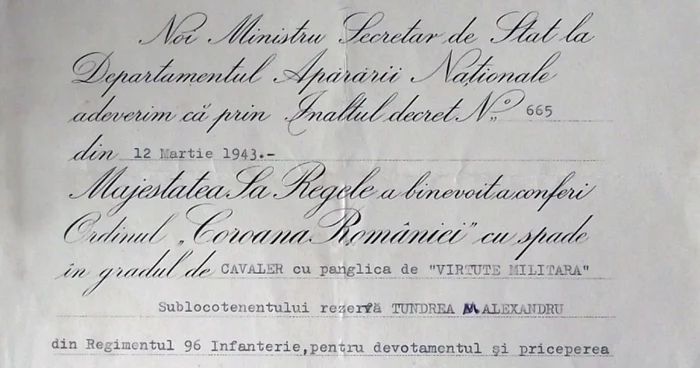 Noi Ministru Secretar de Stat la
Departamentul Apărării Naționale
adeverim că prin Inaltul decret No 665
din 12 Martie 1943.-
Majestatea Sa Regele a binevoit a conferi
Ordinul „Coroana României" cu spade
în gradul de CAVALER cu panglica de "VIRTUTE MILITARA"
Sublocotenentului rezervă TUNDREA M.ALEXANDRU
din Regimentul 96 Infanterie,pentru devotamentul și priceperea